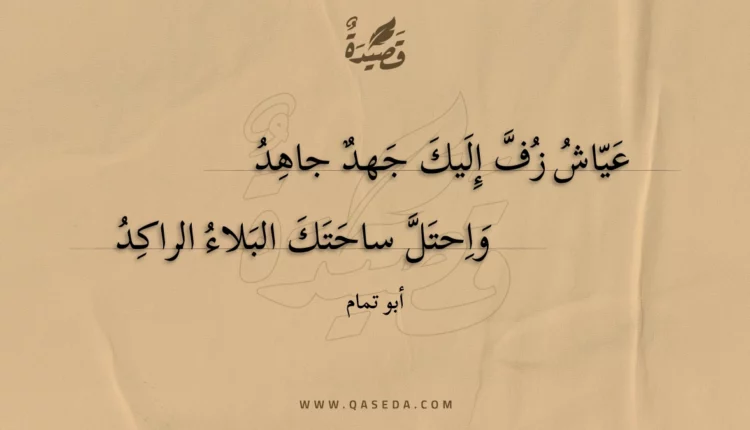 قَصِيدَةٌ
عَيّاشُ زُفَّ إِلَيكَ جَهدٌ جاهِدُ
وَاِحتَلَّ ساحَتَكَ البَلاءُ الراكِدُ
أبو تمام
WWW.QASEDA.COM